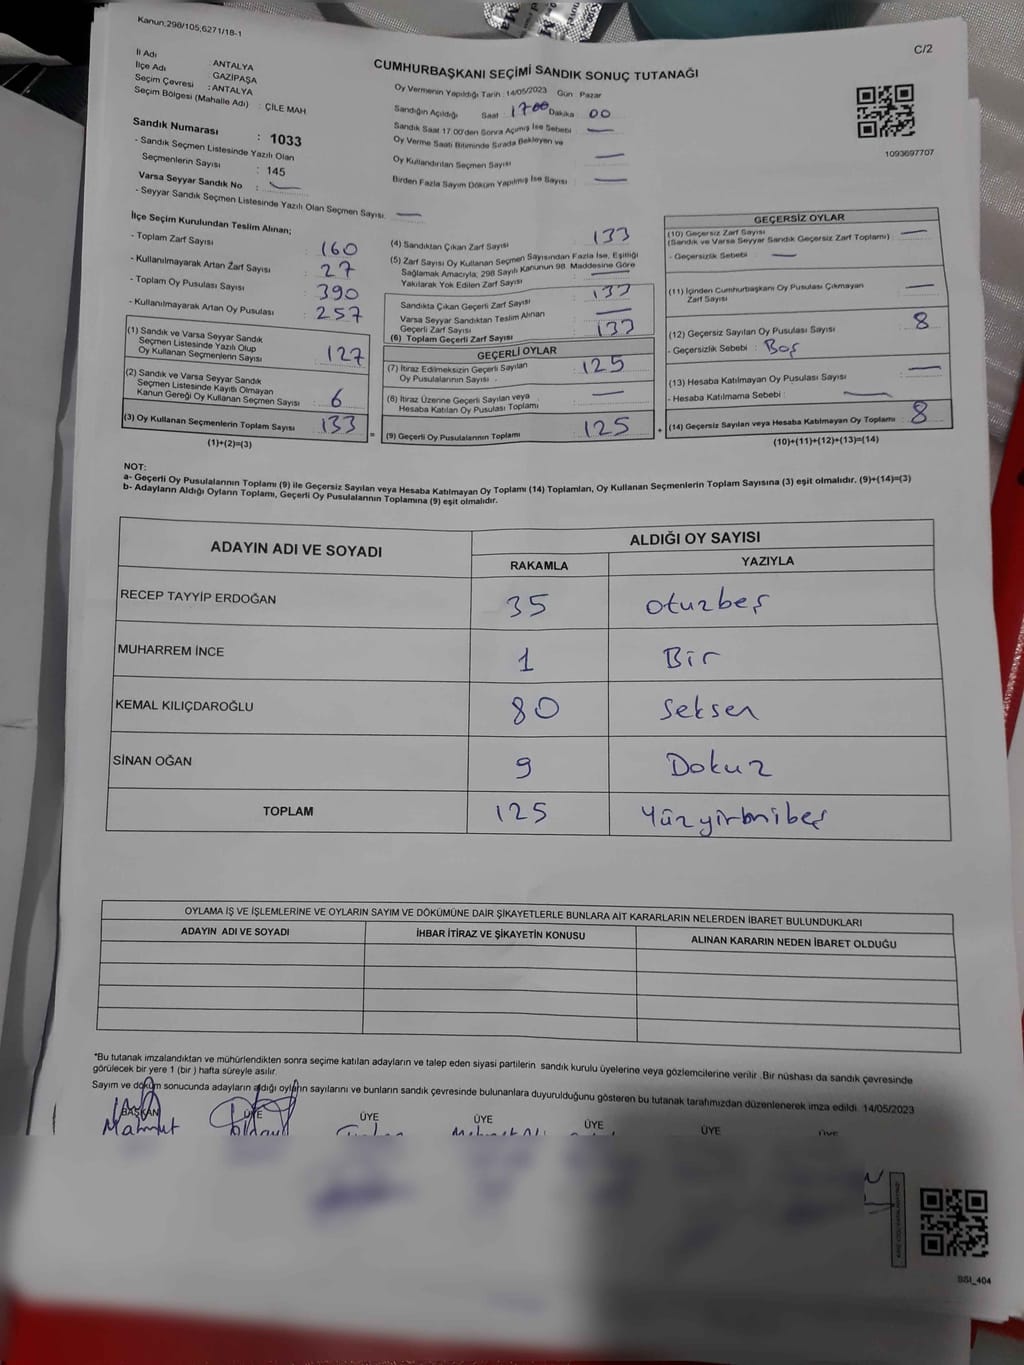 Kanun:298/105;6271/18-1
C/2
İl Adı ANTALYA
İlçe Adı GAZİPAŞA
Seçim Çevresi : ANTALYA
Seçim Bölgesi (Mahalle Adı) : ÇİLE MAH
CUMHURBAŞKANI SEÇİMİ SANDIK SONUÇ TUTANAĞI
Oy Vermenin Yapıldığı Tarih : 14/05/2023 Gün : Pazar
Sandığın Açıldığı Saat : 1700 Dakika 00
Sandık Saat 17.00'den Sonra Açılmış İse Sebebi : —
Oy Verme Saati Bitiminde Sırada Bekleyen ve
Oy Kullandırılan Seçmen Sayısı : —
Birden Fazla Sayım Döküm Yapılmış İse Sayısı : —
1093697707
Sandık Numarası : 1033
- Sandık Seçmen Listesinde Yazılı Olan
Seçmenlerin Sayısı : 145
Varsa Seyyar Sandık No : —
- Seyyar Sandık Seçmen Listesinde Yazılı Olan Seçmen Sayısı: —
İlçe Seçim Kurulundan Teslim Alınan;
- Toplam Zarf Sayısı : 160
- Kullanılmayarak Artan Zarf Sayısı : 27
- Toplam Oy Pusulası Sayısı : 390
- Kullanılmayarak Artan Oy Pusulası : 257
(1) Sandık ve Varsa Seyyar Sandık
Seçmen Listesinde Yazılı Olup
Oy Kullanan Seçmenlerin Sayısı : 127
(2) Sandık ve Varsa Seyyar Sandık
Seçmen Listesinde Kayıtlı Olmayan
Kanun Gereği Oy Kullanan Seçmen Sayısı : 6
(3) Oy Kullanan Seçmenlerin Toplam Sayısı : 133
(1)+(2)=(3)
(4) Sandıktan Çıkan Zarf Sayısı : 133
(5) Zarf Sayısı Oy Kullanan Seçmen Sayısından Fazla İse, Eşitliği
Sağlamak Amacıyla, 298 Sayılı Kanunun 98. Maddesine Göre
Yakılarak Yok Edilen Zarf Sayısı : —
Sandıkta Çıkan Geçerli Zarf Sayısı : 133
Varsa Seyyar Sandıktan Teslim Alınan
Geçerli Zarf Sayısı : —
(6) Toplam Geçerli Zarf Sayısı : 133
GEÇERLİ OYLAR
(7) İtiraz Edilmeksizin Geçerli Sayılan
Oy Pusulalarının Sayısı : 125
(8) İtiraz Üzerine Geçerli Sayılan veya
Hesaba Katılan Oy Pusulası Toplamı : —
= (9) Geçerli Oy Pusulalarının Toplamı : 125
GEÇERSİZ OYLAR
(10) Geçersiz Zarf Sayısı : —
(Sandık ve Varsa Seyyar Sandık Geçersiz Zarf Toplamı)
- Geçersizlik Sebebi : —
(11) İçinden Cumhurbaşkanı Oy Pusulası Çıkmayan
Zarf Sayısı : —
(12) Geçersiz Sayılan Oy Pusulası Sayısı : 8
- Geçersizlik Sebebi : Boş
(13) Hesaba Katılmayan Oy Pusulası Sayısı : —
- Hesaba Katılmama Sebebi : —
+ (14) Geçersiz Sayılan veya Hesaba Katılmayan Oy Toplamı : 8
(10)+(11)+(12)+(13)=(14)
NOT:
a- Geçerli Oy Pusulalarının Toplamı (9) ile Geçersiz Sayılan veya Hesaba Katılmayan Oy Toplamı (14) Toplamları, Oy Kullanan Seçmenlerin Toplam Sayısına (3) eşit olmalıdır. (9)+(14)=(3)
b- Adayların Aldığı Oyların Toplamı, Geçerli Oy Pusulalarının Toplamına (9) eşit olmalıdır.
ADAYIN ADI VE SOYADI ALDIĞI OY SAYISI
RAKAMLA YAZIYLA
RECEP TAYYİP ERDOĞAN 35 otuzbeş
MUHARREM İNCE 1 Bir
KEMAL KILIÇDAROĞLU 80 seksen
SİNAN OĞAN 9 Dokuz
TOPLAM 125 Yüzyirmibeş
OYLAMA İŞ VE İŞLEMLERİNE VE OYLARIN SAYIM VE DÖKÜMÜNE DAİR ŞİKAYETLERLE BUNLARA AİT KARARLARIN NELERDEN İBARET BULUNDUKLARI
ADAYIN ADI VE SOYADI İHBAR İTİRAZ VE ŞİKAYETİN KONUSU ALINAN KARARIN NEDEN İBARET OLDUĞU
*Bu tutanak imzalandıktan ve mühürlendikten sonra seçime katılan adayların ve talep eden siyasi partilerin sandık kurulu üyelerine veya gözlemcilerine verilir .Bir nüshası da sandık çevresinde
görülecek bir yere 1 (bir ) hafta süreyle asılır.
Sayım ve döküm sonucunda adayların aldığı oyların sayılarını ve bunların sandık çevresinde bulunanlara duyurulduğunu gösteren bu tutanak tarafımızdan düzenlenerek imza edildi. 14/05/2023
BAŞKAN ÜYE ÜYE ÜYE ÜYE ÜYE ÜYE
Mahmut
SSI_404